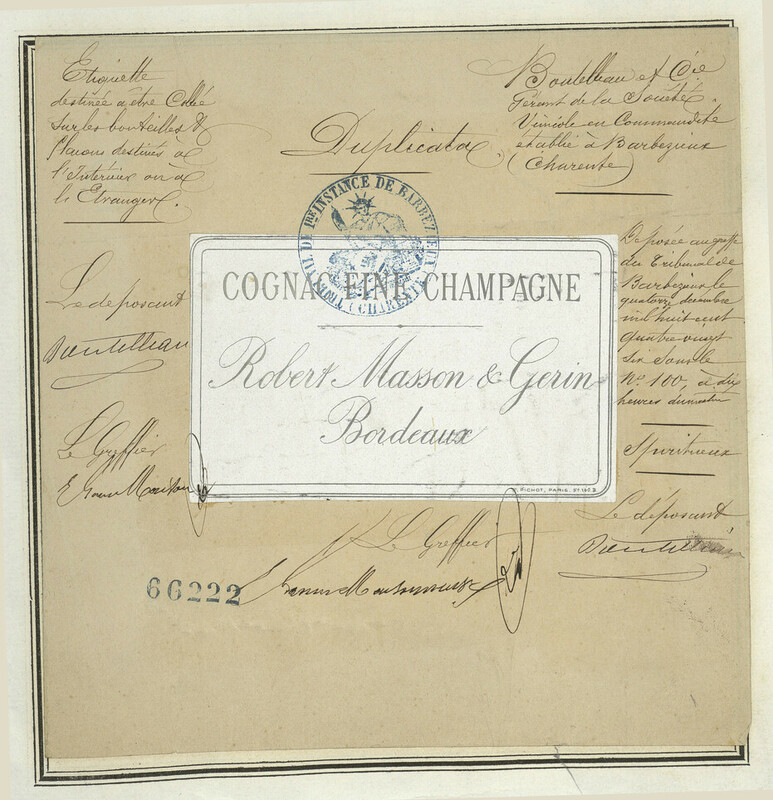 Etiquette
destinée à être Collée
sur les bouteilles &
flacons destinés à
l'Intérieur ou à
l'Etranger.
Duplicata
Boutelleau et Cie
Gérant de la Société
Vinicole en Commandite
établie à Barbezieux
(Charente)
TRIBUNAL DE 1RE INSTANCE DE BARBEZIEUX
(CHARENTE)
COGNAC FINE CHAMPAGNE
Robert Masson & Gerin
Bordeaux
F. PICHOT, PARIS.
Le déposant
Boutelleau
Le Greffier
Déposée au greffe
du Tribunal de
Barbezieux le
quatorze décembre
mil huit cent
quatre vingt
six sous le
No 100, à dix
heures du matin
Spiritueux
Le déposant
Boutelleau
Le Greffier
66222